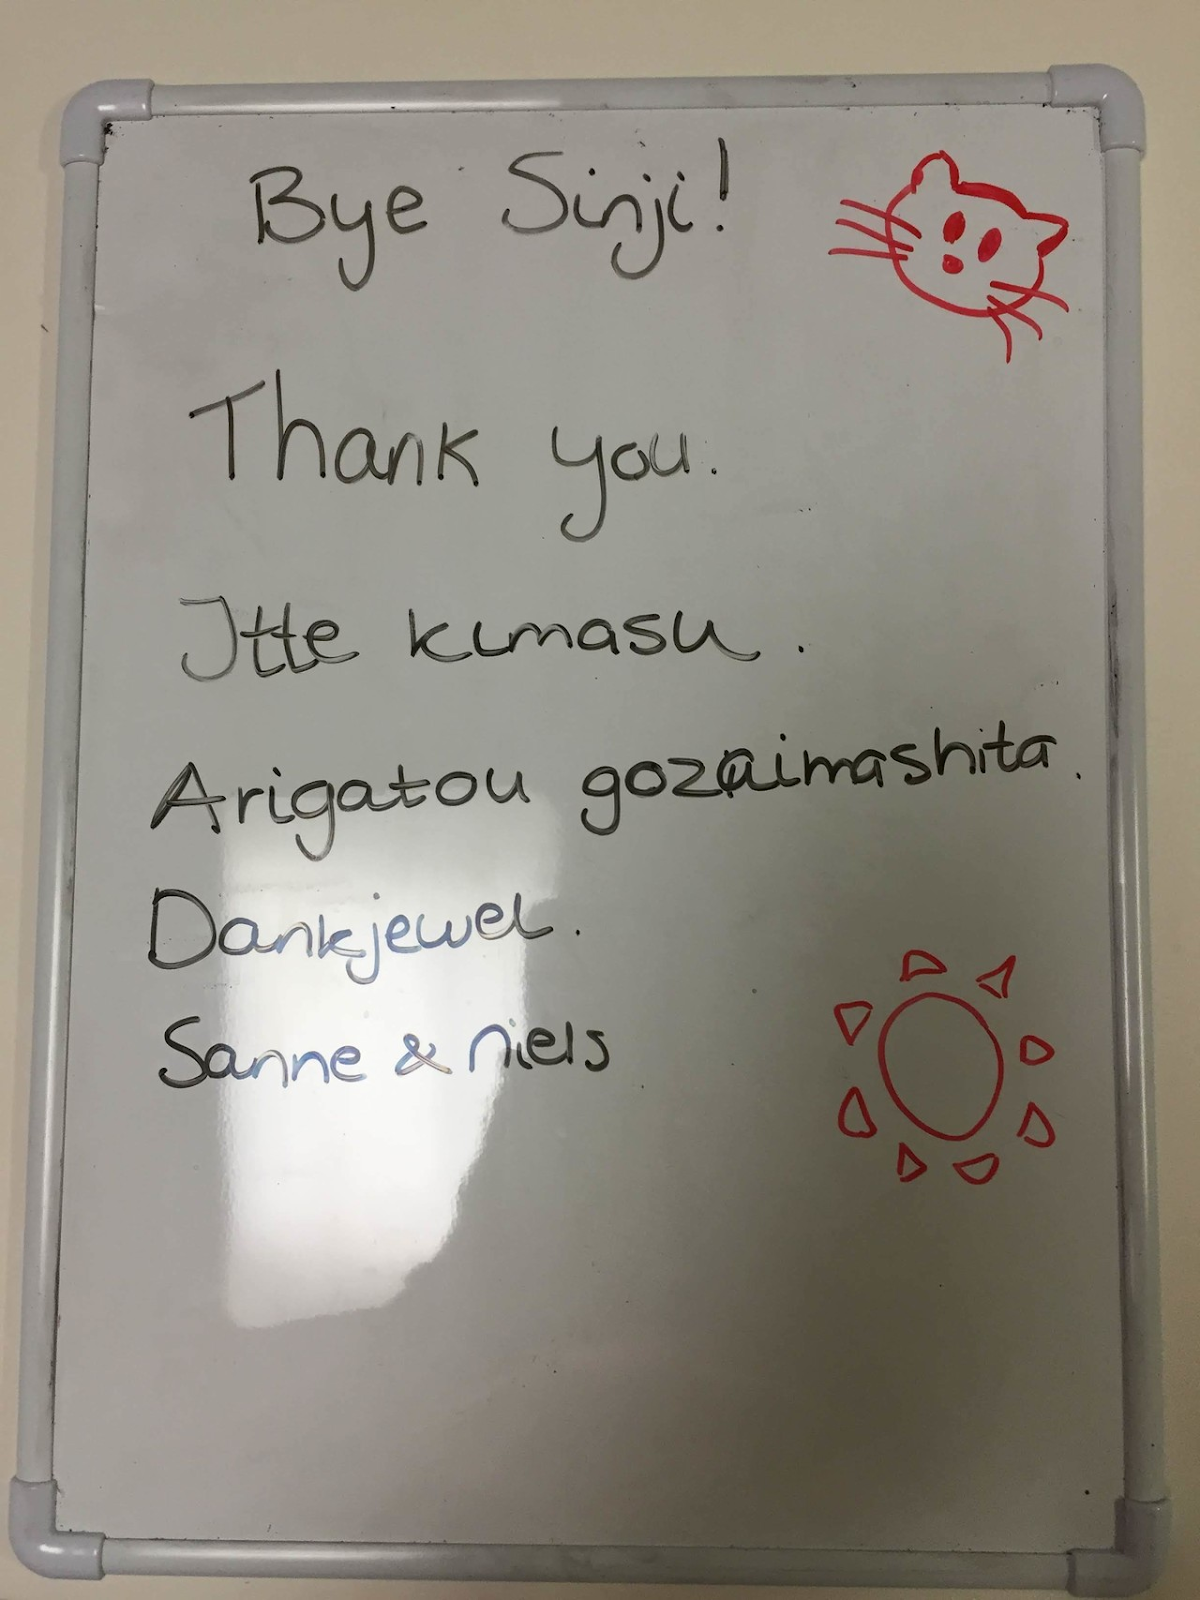 Bye Sinji!
Thank you.
Itte kimasu.
Arigatou gozaimashita.
Dankjewel.
Sanne & niels